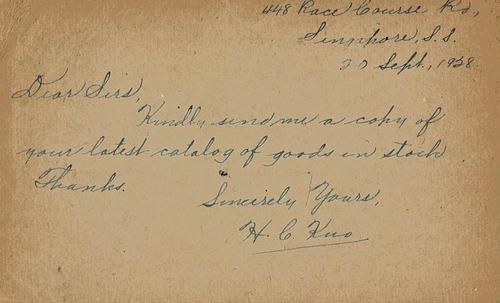 448 Race Course Rd.,
Singapore, S.S.
20 Sept., 1938.
Dear Sirs,
Kindly send me a copy of
your latest catalog of goods in stock
Thanks.
Sincerely Yours,
H. C. Kuo